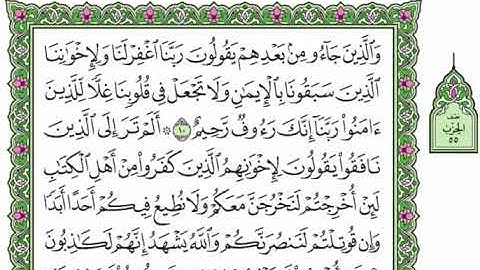 وَٱلَّذِينَ جَآءُو مِنۢ بَعْدِهِمْ يَقُولُونَ رَبَّنَا ٱغْفِرْ لَنَا وَلِإِخْوَٰنِنَا
ٱلَّذِينَ سَبَقُونَا بِٱلْإِيمَٰنِ وَلَا تَجْعَلْ فِى قُلُوبِنَا غِلًّا لِّلَّذِينَ
ءَامَنُوا۟ رَبَّنَآ إِنَّكَ رَءُوفٌ رَّحِيمٌ ١٠ ۞ أَلَمْ تَرَ إِلَى ٱلَّذِينَ
نَافَقُوا۟ يَقُولُونَ لِإِخْوَٰنِهِمُ ٱلَّذِينَ كَفَرُوا۟ مِنْ أَهْلِ ٱلْكِتَٰبِ
لَئِنْ أُخْرِجْتُمْ لَنَخْرُجَنَّ مَعَكُمْ وَلَا نُطِيعُ فِيكُمْ أَحَدًا أَبَدًا
وَإِن قُوتِلْتُمْ لَنَنصُرَنَّكُمْ وَٱللَّهُ يَشْهَدُ إِنَّهُمْ لَكَٰذِبُونَ
نصف
الحزب
٥٥